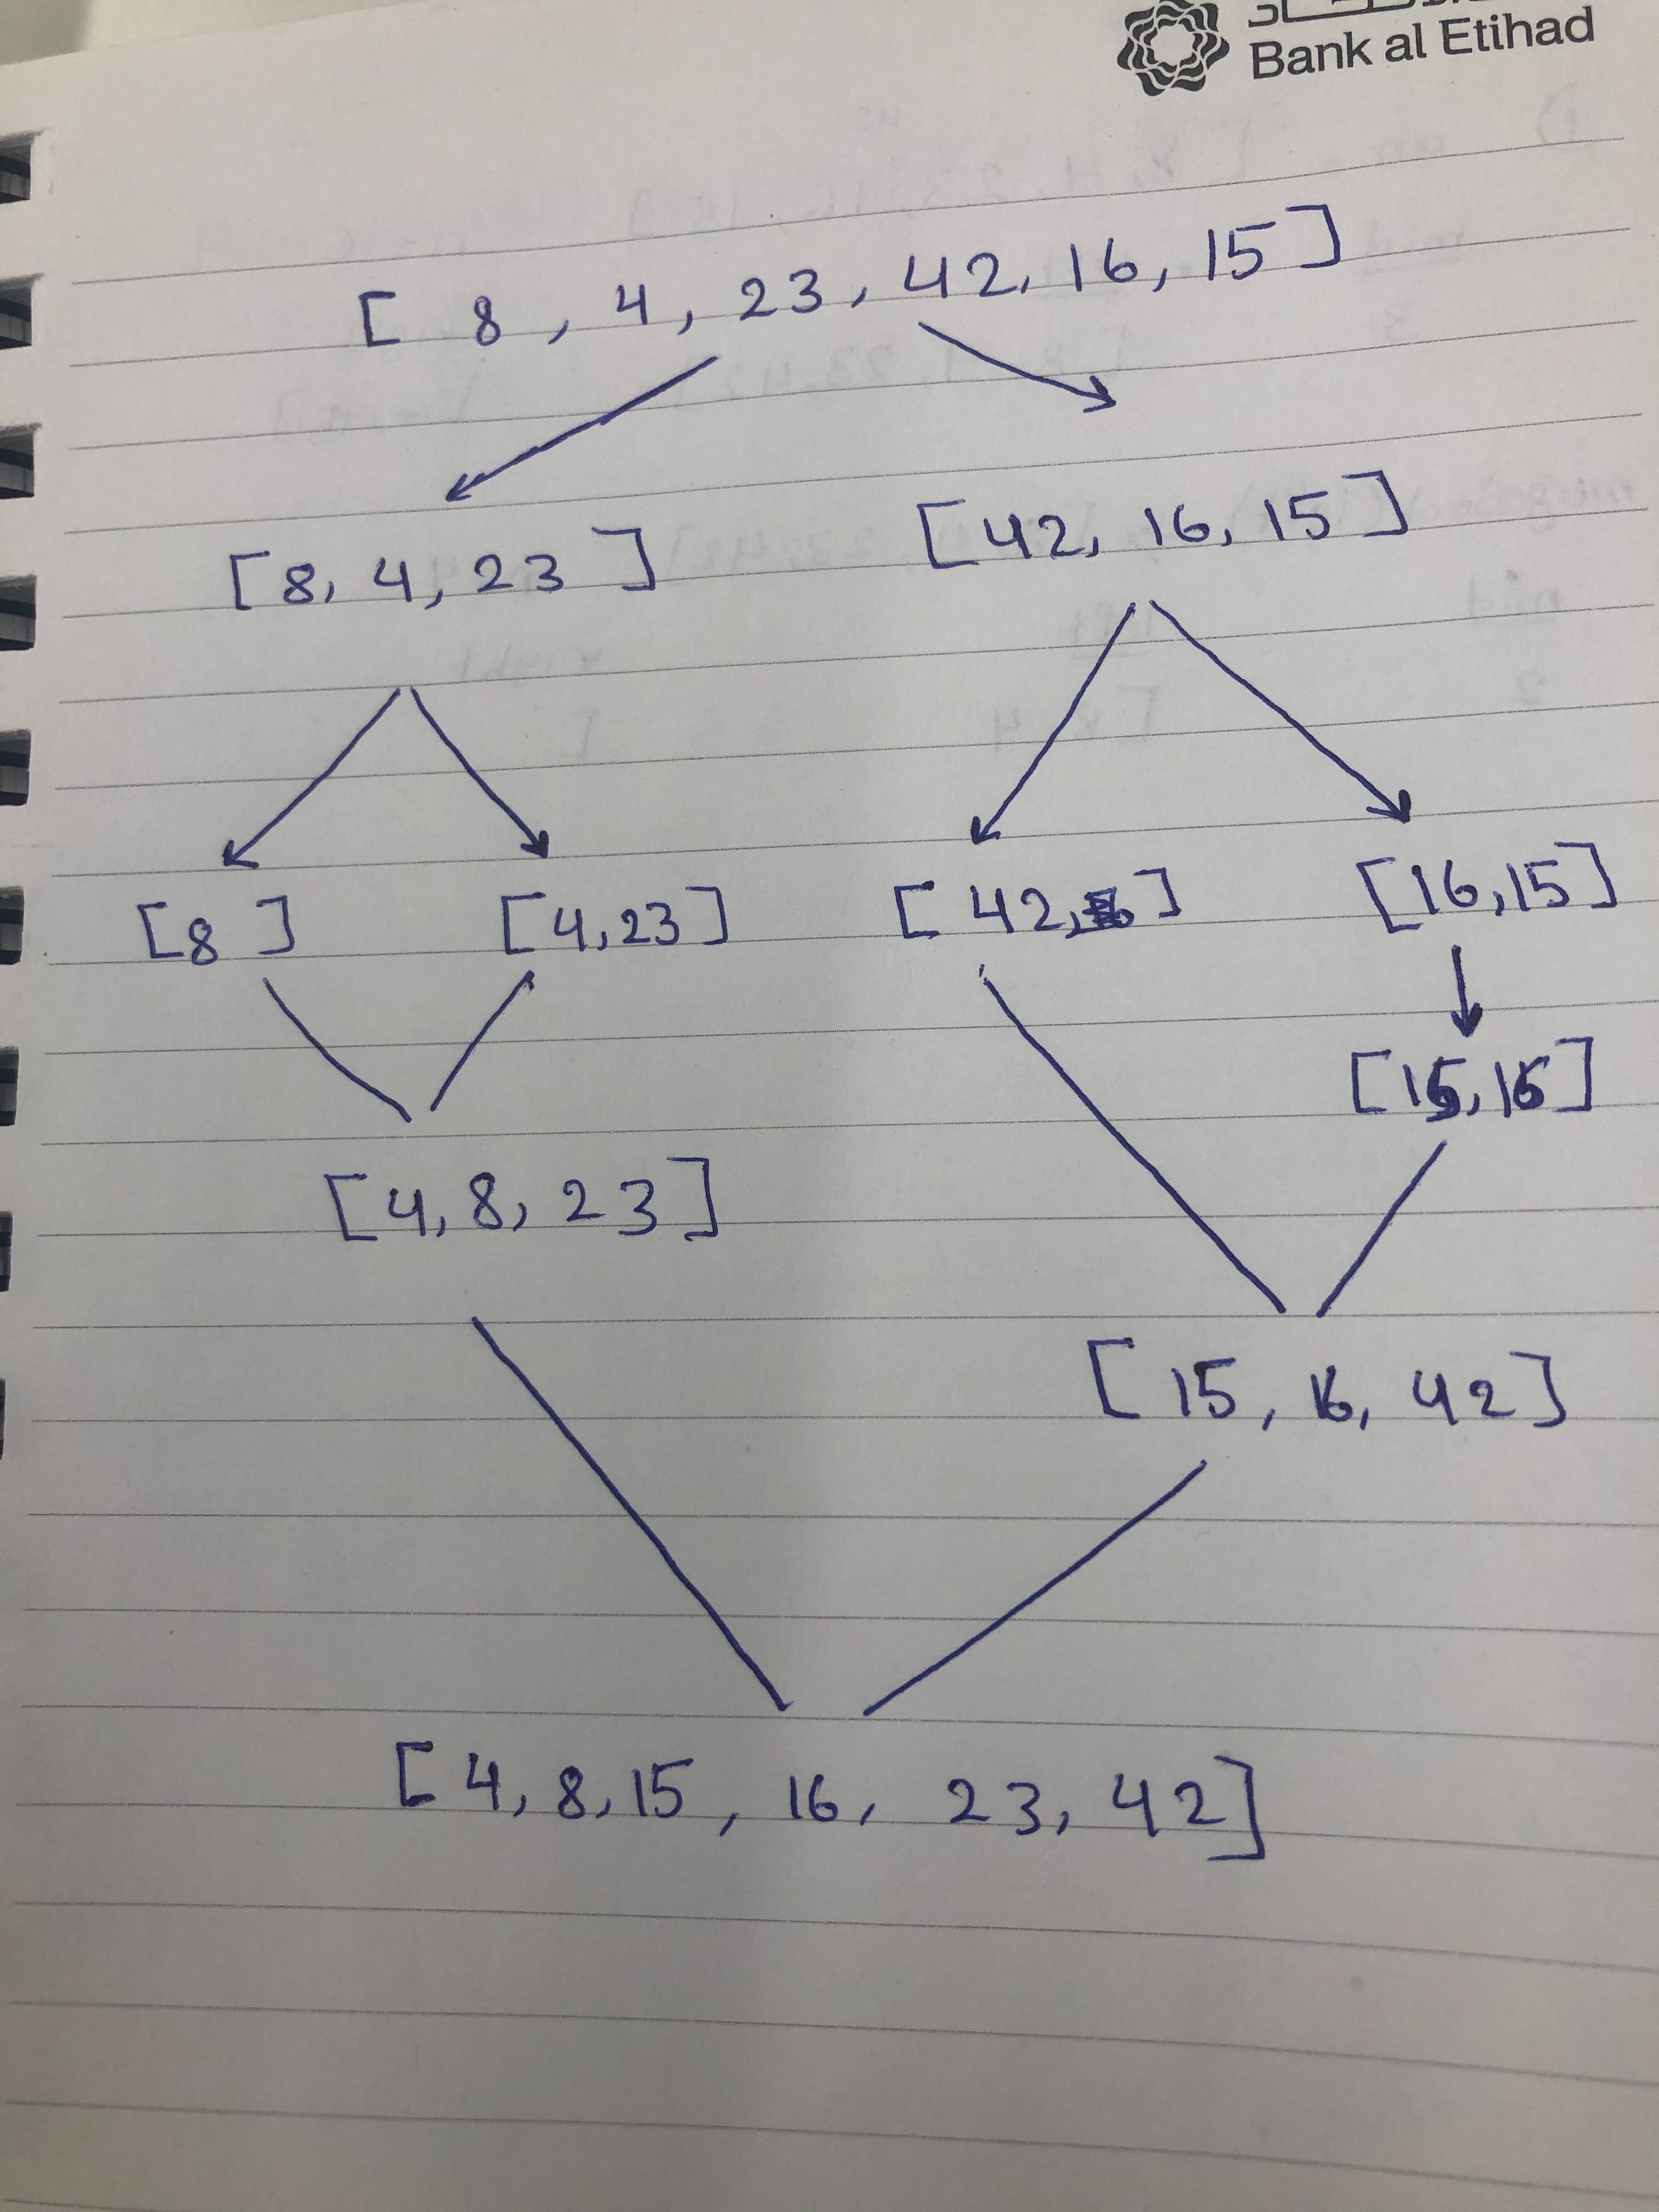 Bank al Etihad
[ 8 , 4 , 23 , 42, 16, 15 ]
[8, 4, 23 ] [42, 16, 15 ]
[8 ] [4,23] [ 42, ] [16,15]
[15,16]
[4,8, 23]
[ 15, 16, 42 ]
[ 4, 8, 15 , 16, 23, 42]